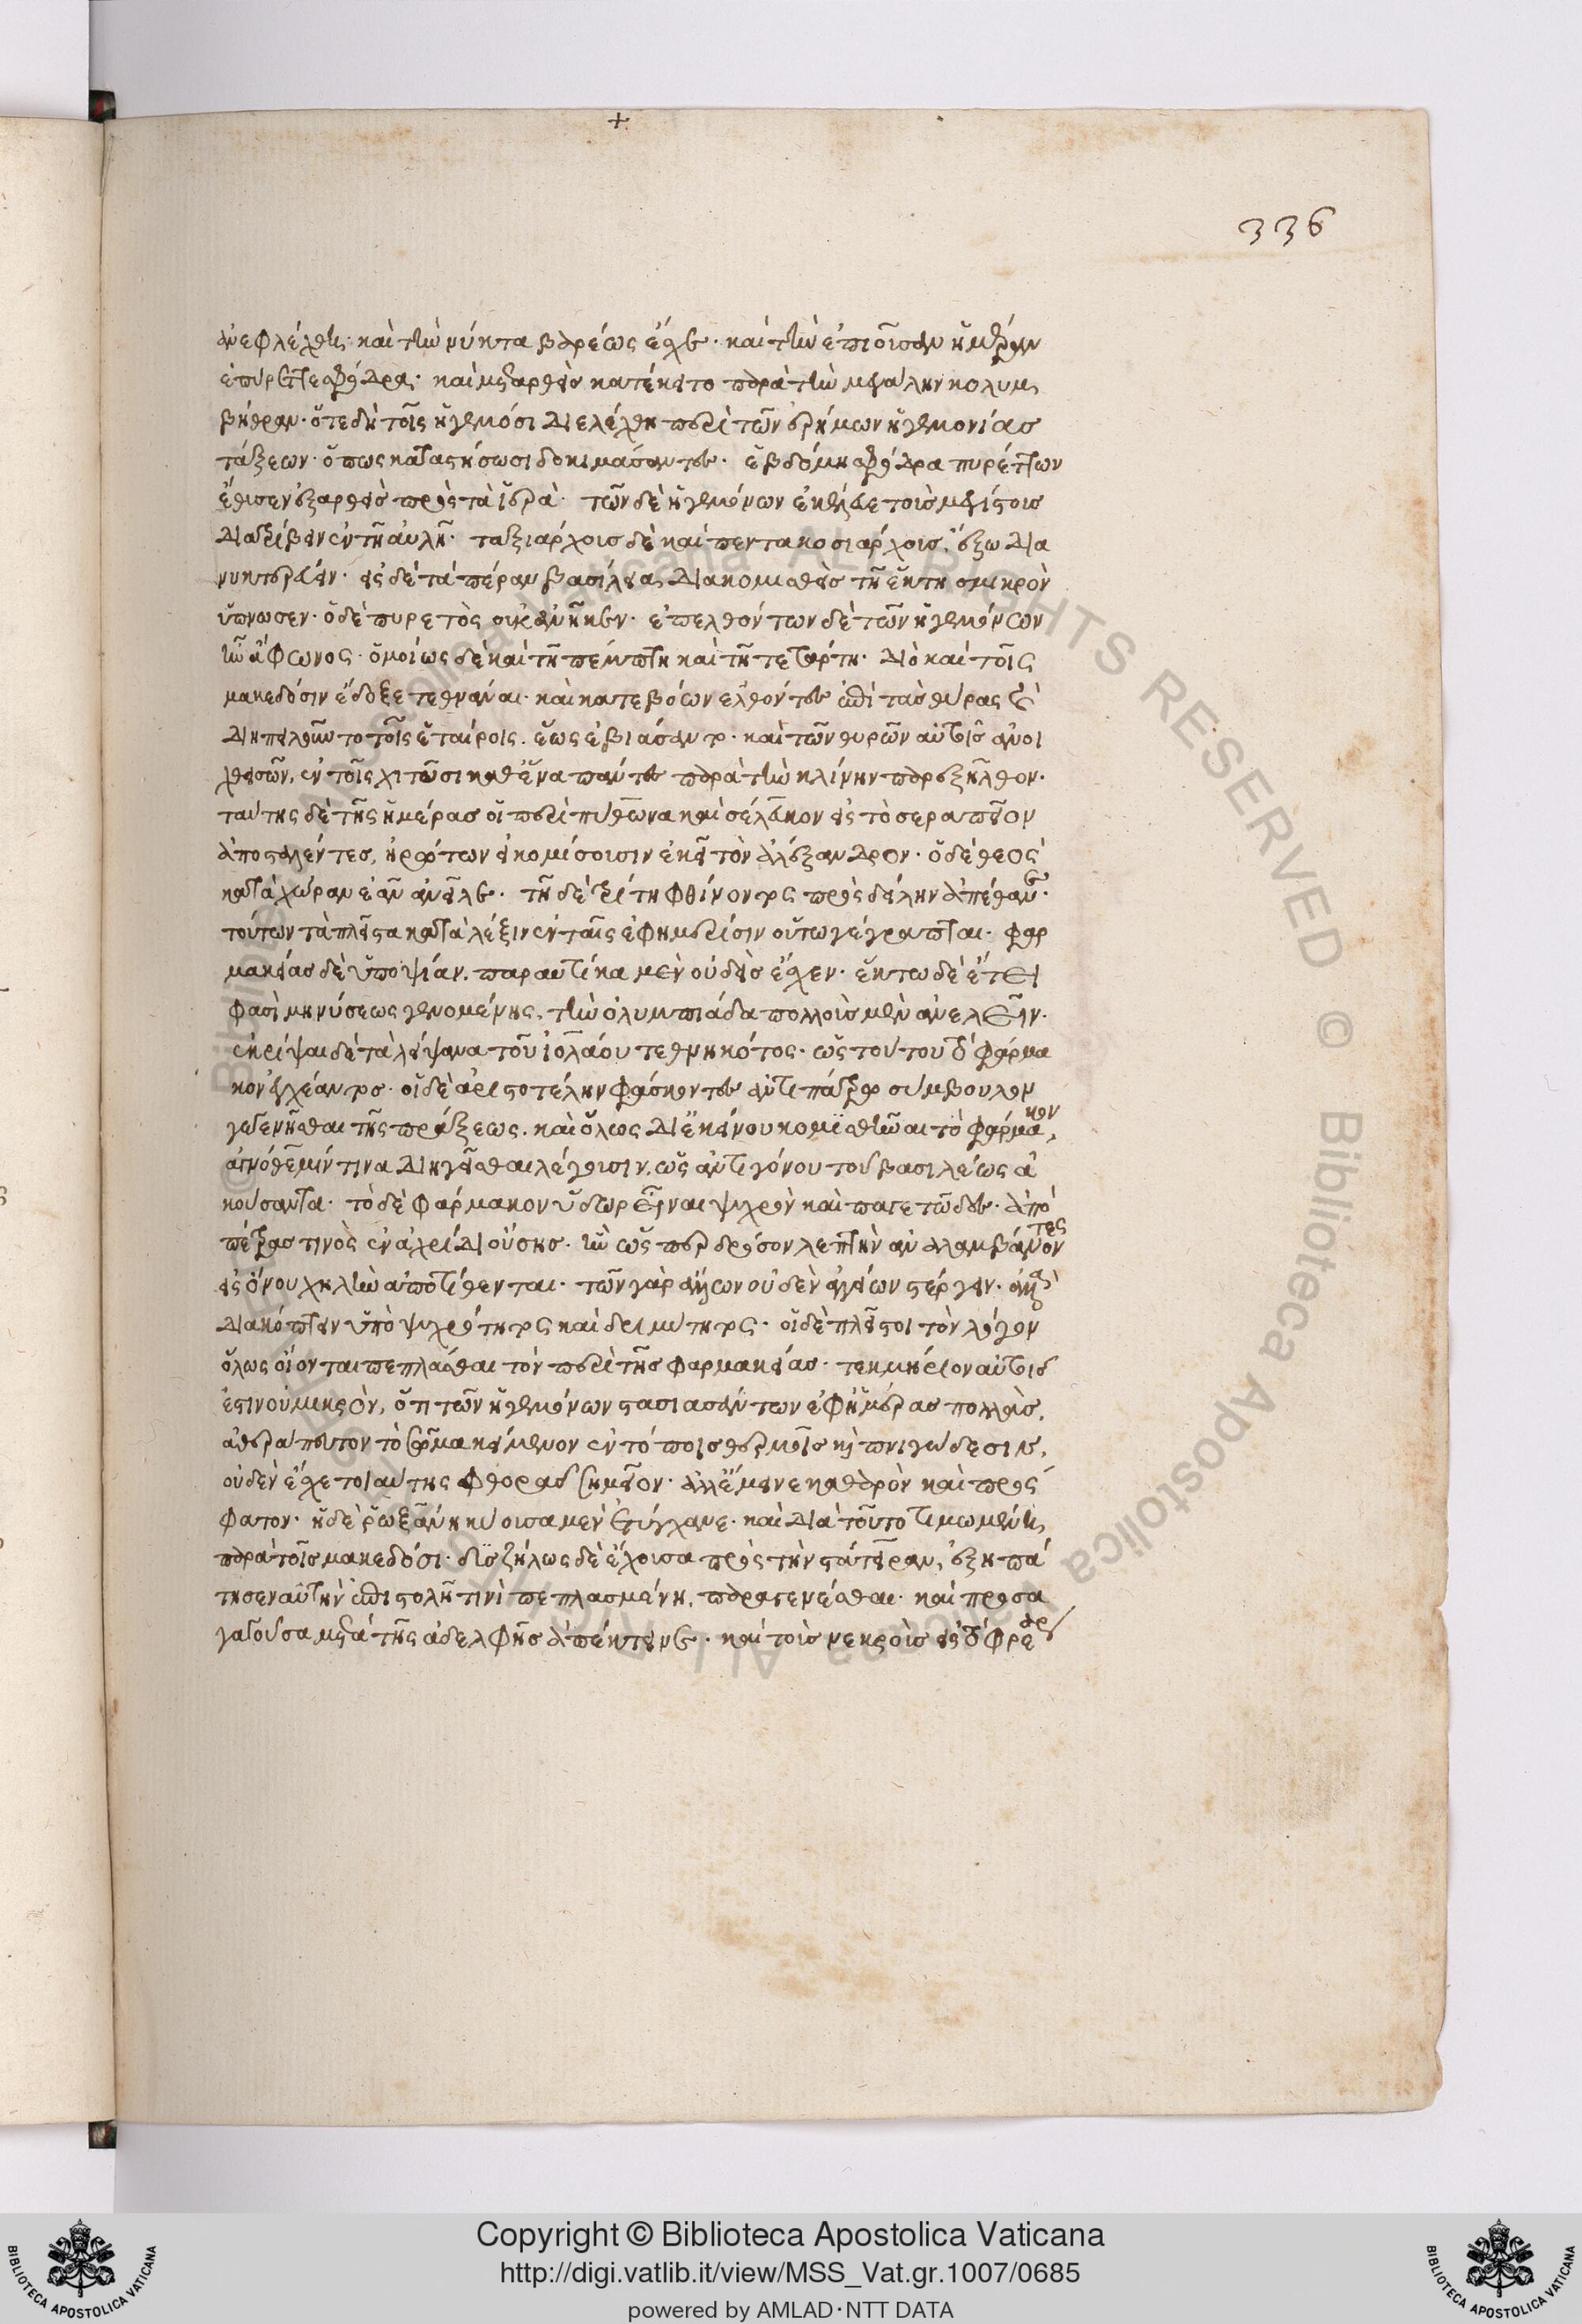 +
336
ἀνεφλέχθη· καὶ τὴν νύκτα βαρέως ἔσχε· καὶ τὴν ἐπιοῦσαν ἡμέραν
ἐπύρεττε σφόδρα· καὶ μεταρθεὶς κατέκειτο παρὰ τὴν μεγάλην κολυμ
βήθραν· ὅτε δὴ τοῖς ἡγεμόσι διελέχθη περὶ τῶν ἐρήμων ἡγεμονίας
τάξεων· ὅπως καταστήσωσι δοκιμάσαντες· ἑβδόμη σφόδρα πυρέττων
ἔθυσεν ἐξαρθεὶς πρὸς τὰ ἱερὰ· τῶν δὲ ἡγεμόνων ἐκέλευε τοὺς μεγίστους
διατρίβειν ἐν τῇ αὐλῇ· ταξιάρχους δὲ καὶ πεντακοσιάρχους, ἔξω δια
νυκτερεύειν· εἰς δὲ τὰ πέραν βασίλεια, διακομισθεὶς τῇ ἕκτῃ σμικρὸν
ὕπνωσεν· ὁ δὲ πυρετὸς οὐκ ἀνῆκεν· ἐπελθόντων δὲ τῶν ἡγεμόνων
ἦν ἄφωνος· ὁμοίως δὲ καὶ τῇ πέμπτῃ καὶ τῇ τετάρτῃ· διὸ καὶ τοῖς
μακεδόσιν ἔδοξε τεθνάναι· καὶ κατεβόων ἐλθόντες ἐπὶ τὰς θύρας καὶ
διηπειλοῦντο τοῖς ἑταίροις. ἕως ἐβιάσαντο· καὶ τῶν θυρῶν αὐτοῖς ἀνοι
χθεισῶν, ἐν τοῖς χιτῶσι καθ ἕνα πάντες παρὰ τὴν κλίνην παρεξῆλθον·
ταύτης δὲ τῆς ἡμέρας οἱ περὶ πύθωνα καὶ σέλευκον εἰς τὸ σεραπεῖον
ἀποσταλέντες, ἠρώτων εἰ κομίσουσιν ἐκεῖ τὸν ἀλέξανδρον· ὁ δὲ θεὸς
κατὰ χώραν ἐᾶν ἀνεῖλε· τῇ δὲ τρίτῃ φθίνοντος πρὸς δείλην ἀπέθανε·
τούτων τὰ πλεῖστα κατὰ λέξιν ἐν ταῖς ἐφημερίσιν οὕτω γέγραπται· φαρ
μακείας δὲ ὑποψίαν, παραυτίκα μὲν οὐδεὶς ἔσχεν· ἕκτω δὲ ἔτει
φασὶ μηνύσεως γενομένης, τὴν ὀλυμπιάδα πολλοὺς μὲν ἀνελεῖν·
ἐκρίψαι δὲ τὰ λείψανα τοῦ ἰολάου τεθνηκότος· ὡς τούτου τὸ φάρμα
κον ἐγχέαντος· οἱ δὲ ἀριστοτέλην φάσκοντες ἀντιπάτρῳ σύμβουλον
γεγενῆσθαι τῆς πράξεως. καὶ ὅλως δι ἐκείνου κομισθῆναι τὸ φάρμακον,
ἁγνόθεμίν τινα διηγεῖσθαι λέγουσιν, ὡς ἀντιγόνου τοῦ βασιλέως ἀ
κούσαντα· τὸ δὲ φάρμακον ὕδωρ εἶναι ψυχρὸν καὶ παγετῶδες· ἀπὸ
πέτρας τινὸς ἐν ἀχριδι οὔσης· ἣν ὡς περ δρόσον λεπτὴν ἀναλαμβάνοντες
εἰς ὄνου χηλὴν ἀποτίθενται· τῶν γὰρ ἄλλων οὐδὲν ἀγγείων στέργειν· ἀλλὰ
διακόπτειν ὑπὸ ψυχρότητος καὶ δριμύτητος· οἱ δὲ πλεῖστοι τὸν λόγον
ὅλως οἴονται πεπλάσθαι τὸν περὶ τῆς φαρμακείας· τεκμήριον αὐτοῖς
ἐστιν οὐ μικρὸν, ὅτι τῶν ἡγεμόνων στασιασάντων ἐφ ἡμέρας πολλὰς,
ἀθεράπευτον τὸ σῶμα κείμενον ἐν τόποις θερμοῖς καὶ πνιγώδεσιν,
οὐδὲν ἔσχε τοιαύτης φθορᾶς σημεῖον· ἀλλ ἔμεινε καθαρὸν καὶ πρόσ
φατον· ἡ δὲ ῥωξάνη κύουσα μὲν ἐτύγχανε· καὶ διὰ τοῦτο τιμωμένη
παρὰ τοῖς μακεδόσι· δυσζήλως δὲ ἔχουσα πρὸς τὴν στάτειραν, ἐξηπά
τησεν αὐτὴν ἐπιστολῇ τινὶ πεπλασμένῃ, παραγενέσθαι· καὶ προσα
γαγοῦσα μετὰ τῆς ἀδελφῆς ἀπέκτεινε· καὶ τοὺς νεκροὺς εἰς τὸ φρέαρ
Copyright © Biblioteca Apostolica Vaticana
http://digi.vatlib.it/view/MSS_Vat.gr.1007/0685
powered by AMLAD·NTT DATA
BIBLIOTECA APOSTOLICA VATICANA
BIBLIOTECA APOSTOLICA VATICANA